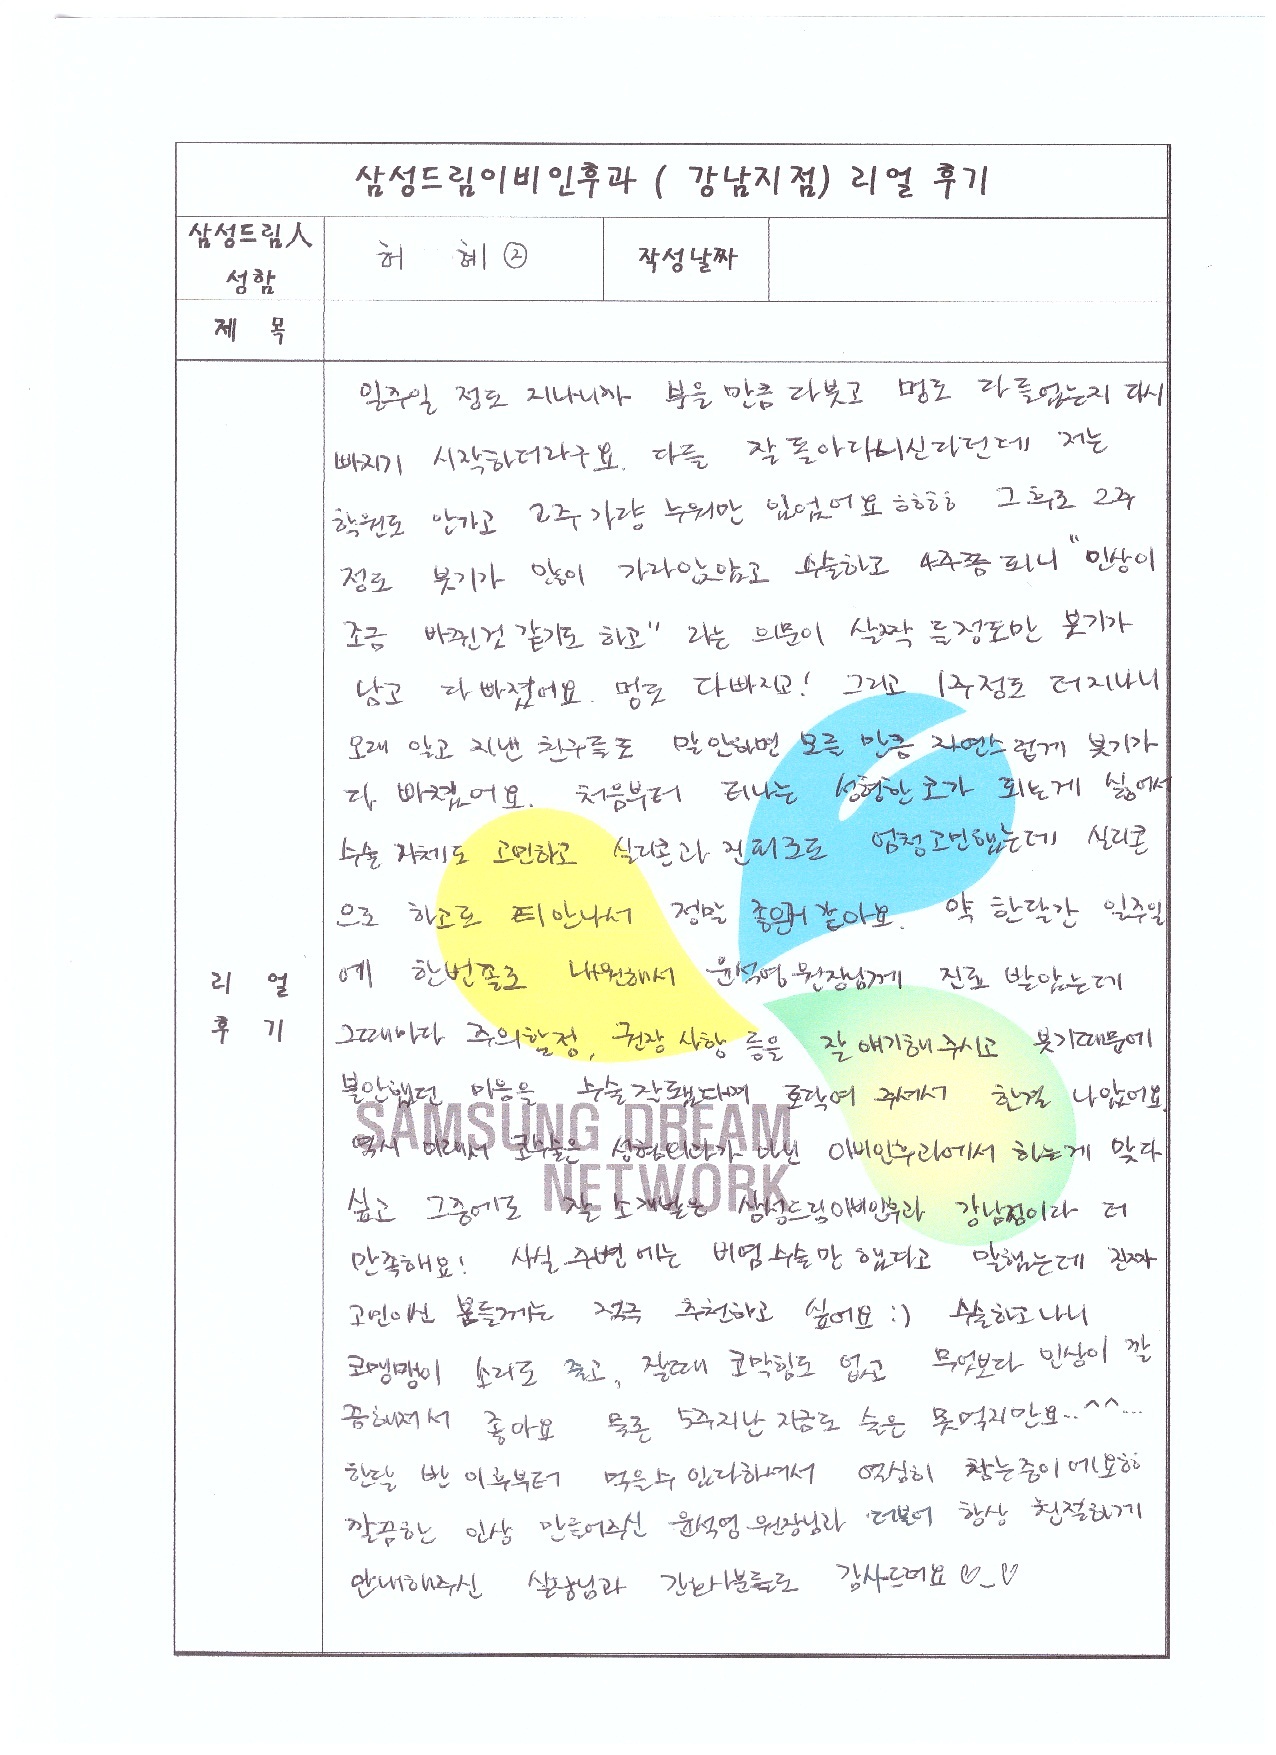 삼성드림이비인후과 ( 강남지점) 리얼 후기
삼성드림人
성함
허 혜 ②
작성날짜
제 목
리 얼
후 기
일주일 정도 지나니까 부을 만큼 다붓고 멍도 다 들었는지 다시
빠지기 시작하더라구요. 다들 잘 돌아다니신다던데 저는
학원도 안가고 2주가량 누워만 있었어요 ㅎㅎㅎㅎ 그 후로 2주
정도 붓기가 많이 가라앉았고 수술하고 4주쯤 되니 "인상이
조금 바뀐것 같기도 하고" 라는 의문이 살짝 들정도만 붓기가
남고 다 빠졌어요. 멍도 다빠지고! 그리고 1주정도 더지나니
오래 알고 지낸 친구들도 말안하면 모를 만큼 자연스럽게 붓기가
다 빠졌어요. 처음부터 티나는 성형한코가 되는게 싫어서
수술 자체도 고민하고 실리콘과 진피로도 엄청고민했는데 실리콘
으로 하고도 티안나서 정말 좋은거 같아요. 약 한달간 일주일
에 한번쯤로 내원해서 윤석영원장님께 진료 받았는데
그때마다 주의할점, 권장 사항 등을 잘 얘기해주시고 붓기때문에
불안했던 마음을 수술잘됐다며 토닥여 주셔서 한결 나았어요.
역시 이래서 코수술은 성형외과가 아닌 이비인후과에서 하는게 맞다
싶고 그중에도 잘 소개받은 삼성드림이비인후과 강남점이라 더
만족해요! 사실 주변에는 비염수술만 했다고 말했는데 진짜
고민이신 분들께는 적극 추천하고 싶어요 :) 수술하고나니
코맹맹이 소리도 줄고, 잘때 코막힘도 없고 무엇보다 인상이 깔
끔해져서 좋아요 물론 5주지난 지금도 술은 못먹지만요..^^...
한달 반 이후부터 먹을수 있다하셔서 열심히 참는중이에요ㅎㅎ
깔끔한 인상 만들어주신 윤석영 원장님과 더불어 항상 친절하게
안내해주신 실장님과 간호사분들도 감사드려요 ♡_♡
SAMSUNG DREAM
NETWORK